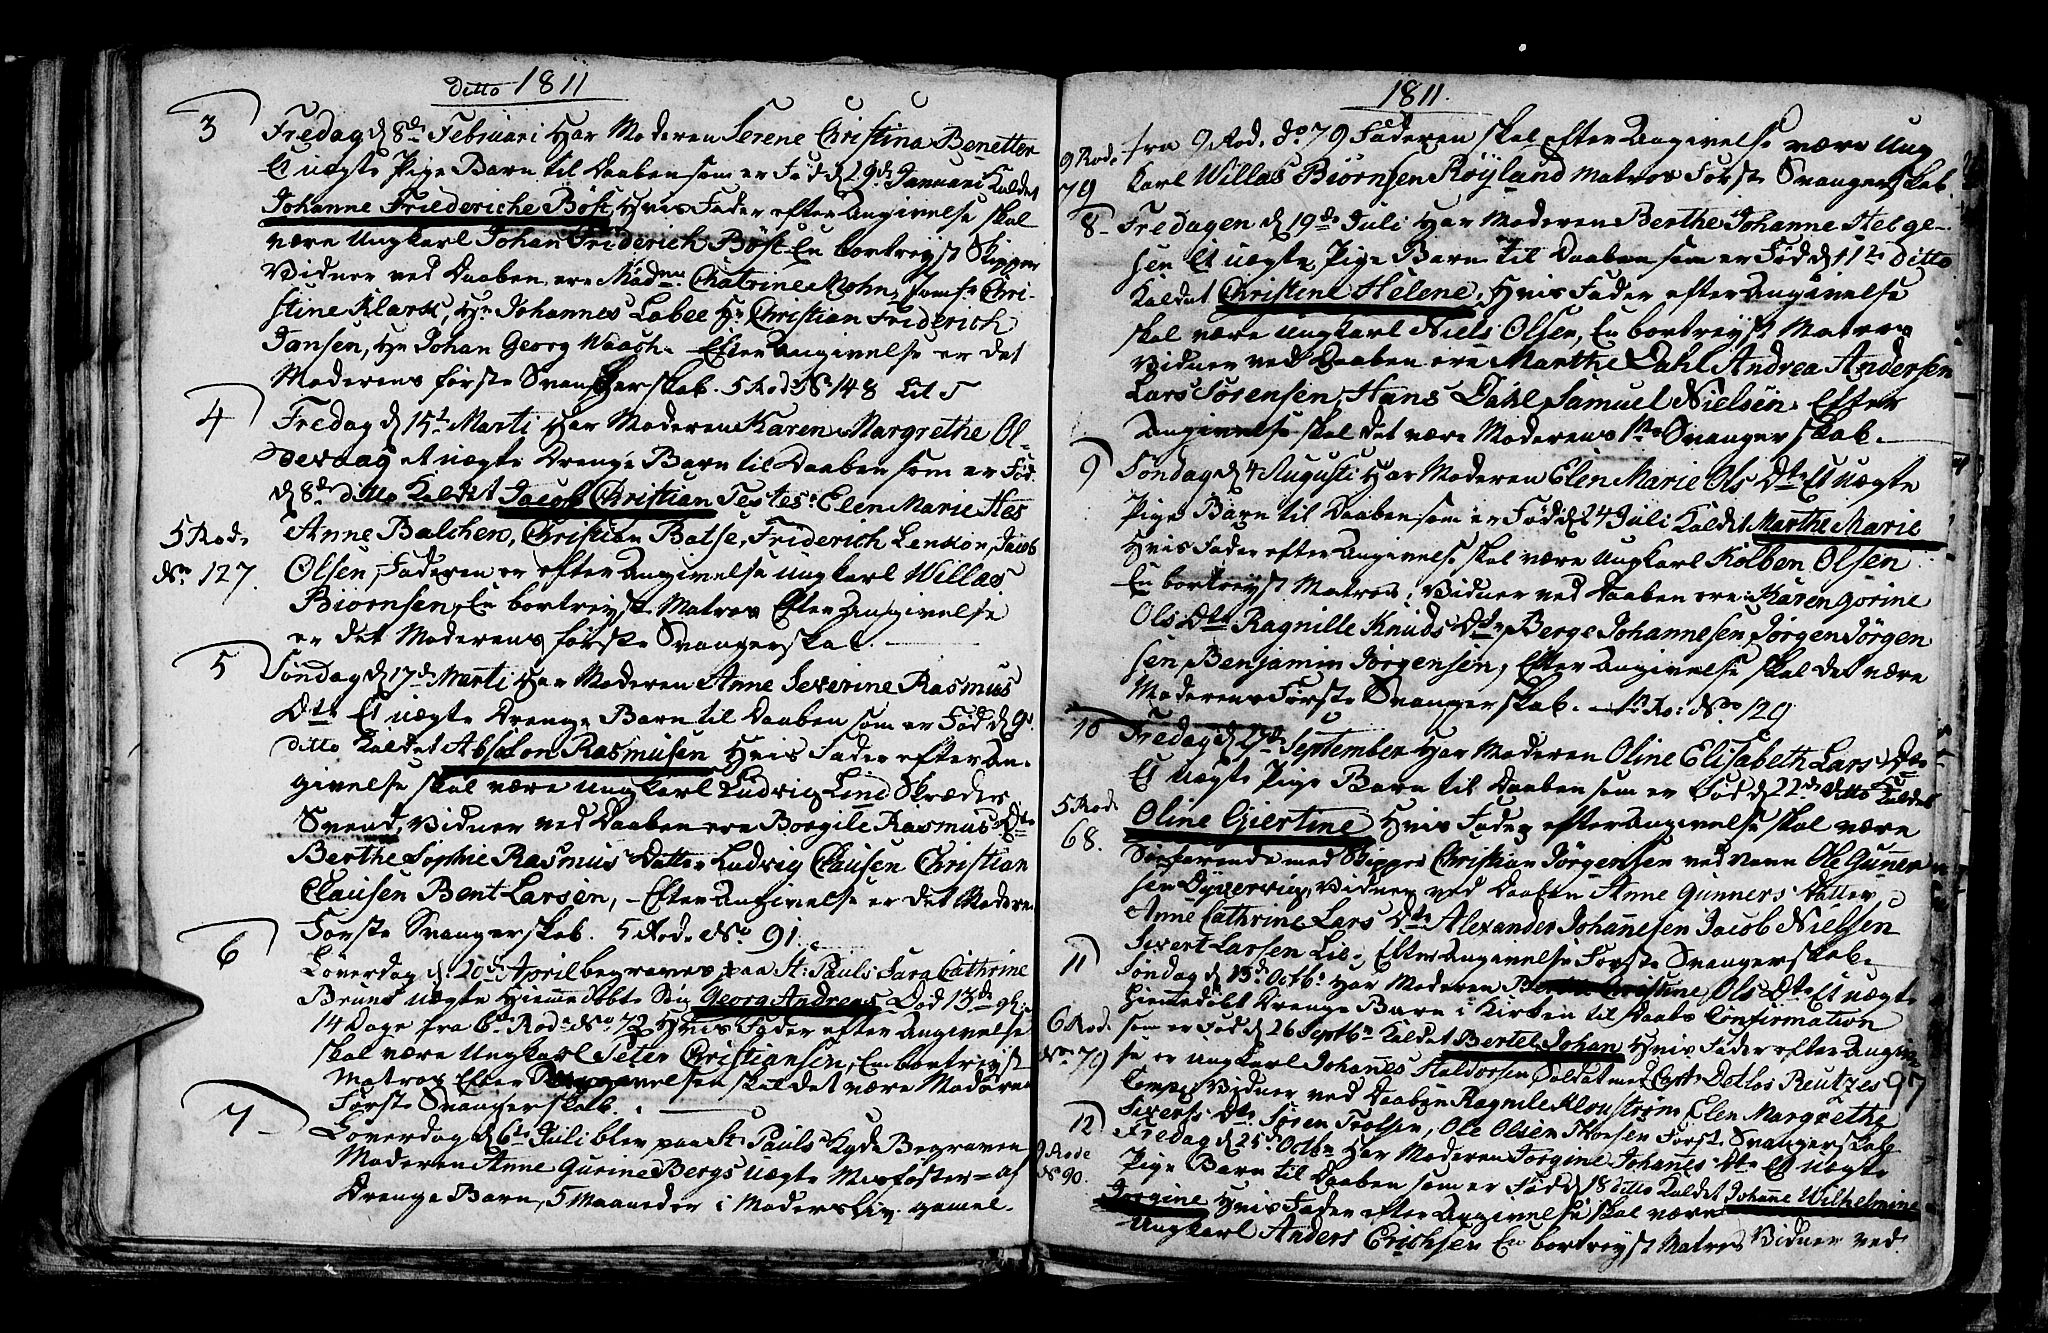 ditto 1811
3
Fredag d 8de Februari har Moderen Serene Christina Benetter
Et uægte Pige Barn til Daaben som er Fød d 29de Januari Kaldet
Johanne Friederiche Böst, Hvis Fader efter Angivelse skal
være Ungkarl Johan Friderich Böst En bortreyst Skipper
Vidner ved Daaben ere Madme Chatrine Mohn, Jomfr Chri-
stine Klark, Hr Johannes Labee Hr Christian Friderich
Jansen, Hr Johan Georg Waach. Efter Angivelse er det
Moderens første Svangerskab. 5 Rode No 148 Lit
4
Fredag d 15de Marti har Moderen Karen Margrethe Ol-
devaag et uægte Drenge Barn til Daaben som er Fød
d 8de ditto Kaldet Jacob Christian Testes: Elen Marie Hes
Anne Balchen, Christian Batse, Friderich Lenkon, Jacob
5 Rode
No 127.
Olsen, Faderen er efter Angivelse Ungkarl Willas
Biørnsen, En bortreyst Matros Efter Angivelse
er det Moderens første Svangerskab.
5
Søndag d 17de Marti har Moderen Anne Severine Rasmus
Dtr Et uægte Drenge Barn til Daaben som er Fød d 9de
ditto Kaldet Absalon Rasmusen Hvis Fader efter An-
givelse skal være Ungkarl Ludvig Lind Skræder
Svend, Vidner ved Daaben ere Borgile Rasmus Dtr
Berthe Sophie Rasmus Datter Ludvig Clausen Christian
Clausen Bent Larsen, Efter Angivelse er det Moderens
Første Svangerskab. 5 Rode No 91
6
Løverdag d. 20de April begraves paa St: Pauls Sara Cathrine
Bruns uægte Hiemmedøbte Søn Georg Andreas Død 13de
14 Dage fra 6te Rode No 72 Hvis Fader efter Angivelse
skal være Ungkarl Peter Christiansen, En bortreyst
Matros Efter skal det være Moderens
Første Svangerskab.
7
Løverdag d 6te Juli blev paa St Pauls Begraven
Moderen Anne Gurine Bergs uægte Misfoster af
Drenge Barn, 5 Maaneder i Moders Liv gamel.
1811.
9 Rode
79
fra 9 Rode do 79 Faderen skal efter Angivelse være Ung
Karl Willas Biørnsen Røyland Matros Første Svangerskab
8
Fredagen d 19de Juli har Moderen Berthe Johanne Helge-
sen Et uægte Pige Barn til Daaben som er Fød d 11te ditto
Kaldet Christine Helene, Hvis Fader efter Angivelse
skal være Ungkarl Niels Olsen, En bortreyst Matros
Vidner ved Daaben ere Marthe Dahl Andrea Andersen
Lars Sørensen, Hans Dahl Samuel Nielsen. Efter
Angivelse skal det være Moderens 1te Svangerskab.
9
Søndag d 4 Augusti har Moderen Elen Marie Ols Dtr Et uægte
Pige Barn til Daaben som er Fød d 24 Juli Kaldet Marthe Marie
Hvis Fader efter Angivelse skal være Ungkarl Kolben Olsen
En bortreyst Matros, Vidner ved Daaben ere Karen Gorine
Ols Dtr Ragnille Knuds Dtr Berge Johannesen, Jørgen Jørgen
sen, Benjamin Jørgensen, Efter Angivelse skal det være
Moderens Første Svangerskab. Ro: No 129
10
Fredag d 27de September har Moderen Oline Elisabeth Lars Dtr
Et uægte Pige Barn til Daaben som er Fød d 22de ditto Kaldet
5 Rode
68.
Oline Giertine Hvis Fader efter Angivelse skal være
Søefarende med Skipper Christian Jørgensen ved Navn Ole Guner
sen Dyvervig, Vidner ved Daaben Anne Gunners Datter
Anne Cathrine Lars Dtr Alexander Johanesen Jacob Nielsen
Sivert Larsen Lie, Efter Angivelse Første Svangerskab.
11
Søndag d 13de Octbr har Moderen Berthe Christine Ols Dtr Et uægte
Hiemmedøbt Drenge Barn i Kirken til Daabs Confirmation
6 Rode
No 79
som er Fød d 26 Septbr Kaldet Bertel Johan Hvis Fader efter Angivel
se er Ungkarl Johanes Haldorsen Soldat med Capt: Ditlos Reutzes 97
Comp: Vidner ved Daaben Ragnile Kloustrøm, Elen Margrethe
Siverts Dtr Søren Trolsen, Ole Olsen Thorsen Første Svangerskab
12
9 Rode
No 90.
Fredag d 25de Octbr har Moderen Jorgine Johanes Dtr Et uægte
Pige Barn til Daaben som er Fød d 18 ditto Kaldet Johane Wilhelmine
Jorgine Hvis Fader efter Angivelse skal være
Ungkarl Anders Erichsen En bortreyst Matros Vidner ved